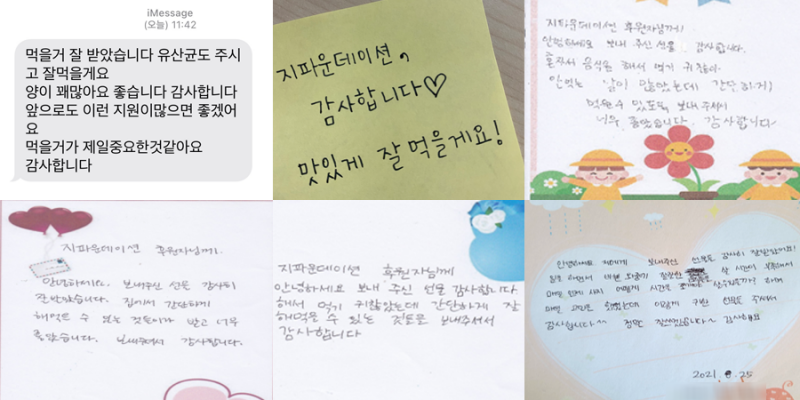 iMessage
(오늘) 11:42
먹을거 잘 받았습니다 유산균도 주시
고 잘먹을게요
양이 꽤많아요 좋습니다 감사합니다
앞으로도 이런 지원이많으면 좋겠어
요
먹을거가 제일중요한것같아요
감사합니다
지파운데이션,
감사합니다♡
맛있게 잘 먹을게요!
지파운데이션 후원자님께!
안녕하세요 보내 주신 선물 감사합니다.
혼자서 음식을 해서 먹기 귀찮아
안먹는 날이 많았는데 간단하게
먹을수 있도록 보내주셔서
너무 좋았습니다. 감사합니다
지파운데이션 후원자님께.
안녕하세요. 보내주신 선물 감사히
잘받았습니다. 집에서 간단하게
해먹을 수 있는 것들이라 받고 너무
좋았습니다. 보내주셔서 감사합니다.
지파운데이션 후원자님께
안녕하세요 보내 주신 선물 감사합니다
해서 먹기 귀찮았는데 간단하게 잘
해먹을 수 있는 것들을 보내주셔서
감사합니다
안녕하세요 보내주신 선물 감사히 잘받았어요!
시간이
귀한 선물 주셔서
감사합니다~ 정말 감사해요
2021. 25